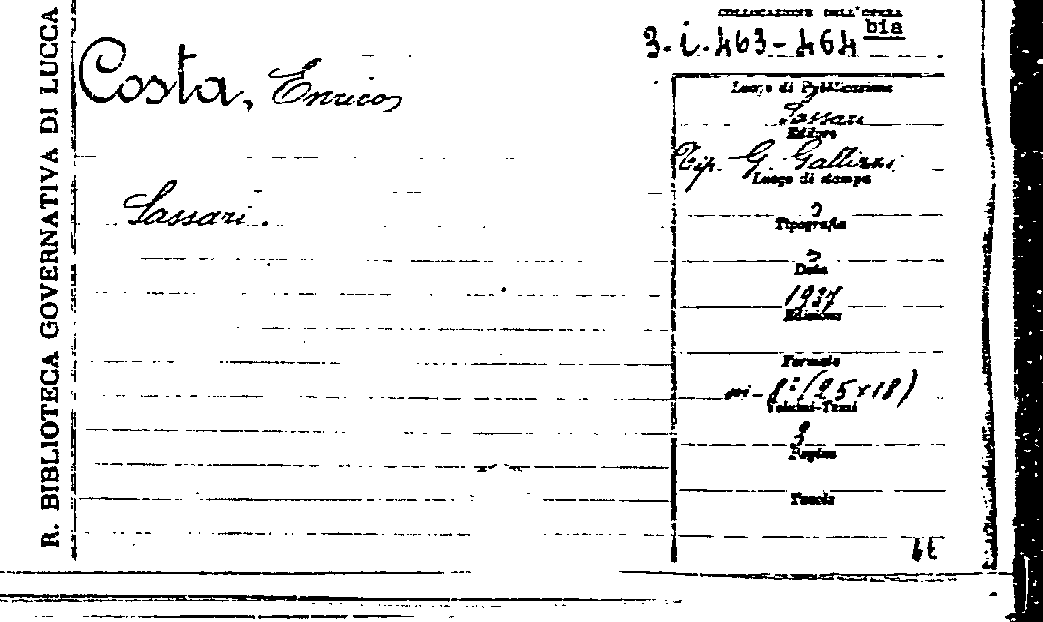 R. BIBLIOTECA GOVERNATIVA DI LUCCA
COLLOCAZIONE DELL'OPERA
3. i. 463-464 bis
Costa, Enrico
Sassari.
Luogo di Pubblicazione
Sassari
Editore
Tip. G. Gallizzi
Luogo di stampa
Tipografia
Data
1937
Edizione
Formato
in-8° (25x18)
Volumi-Tomi
Pagine
Tavole